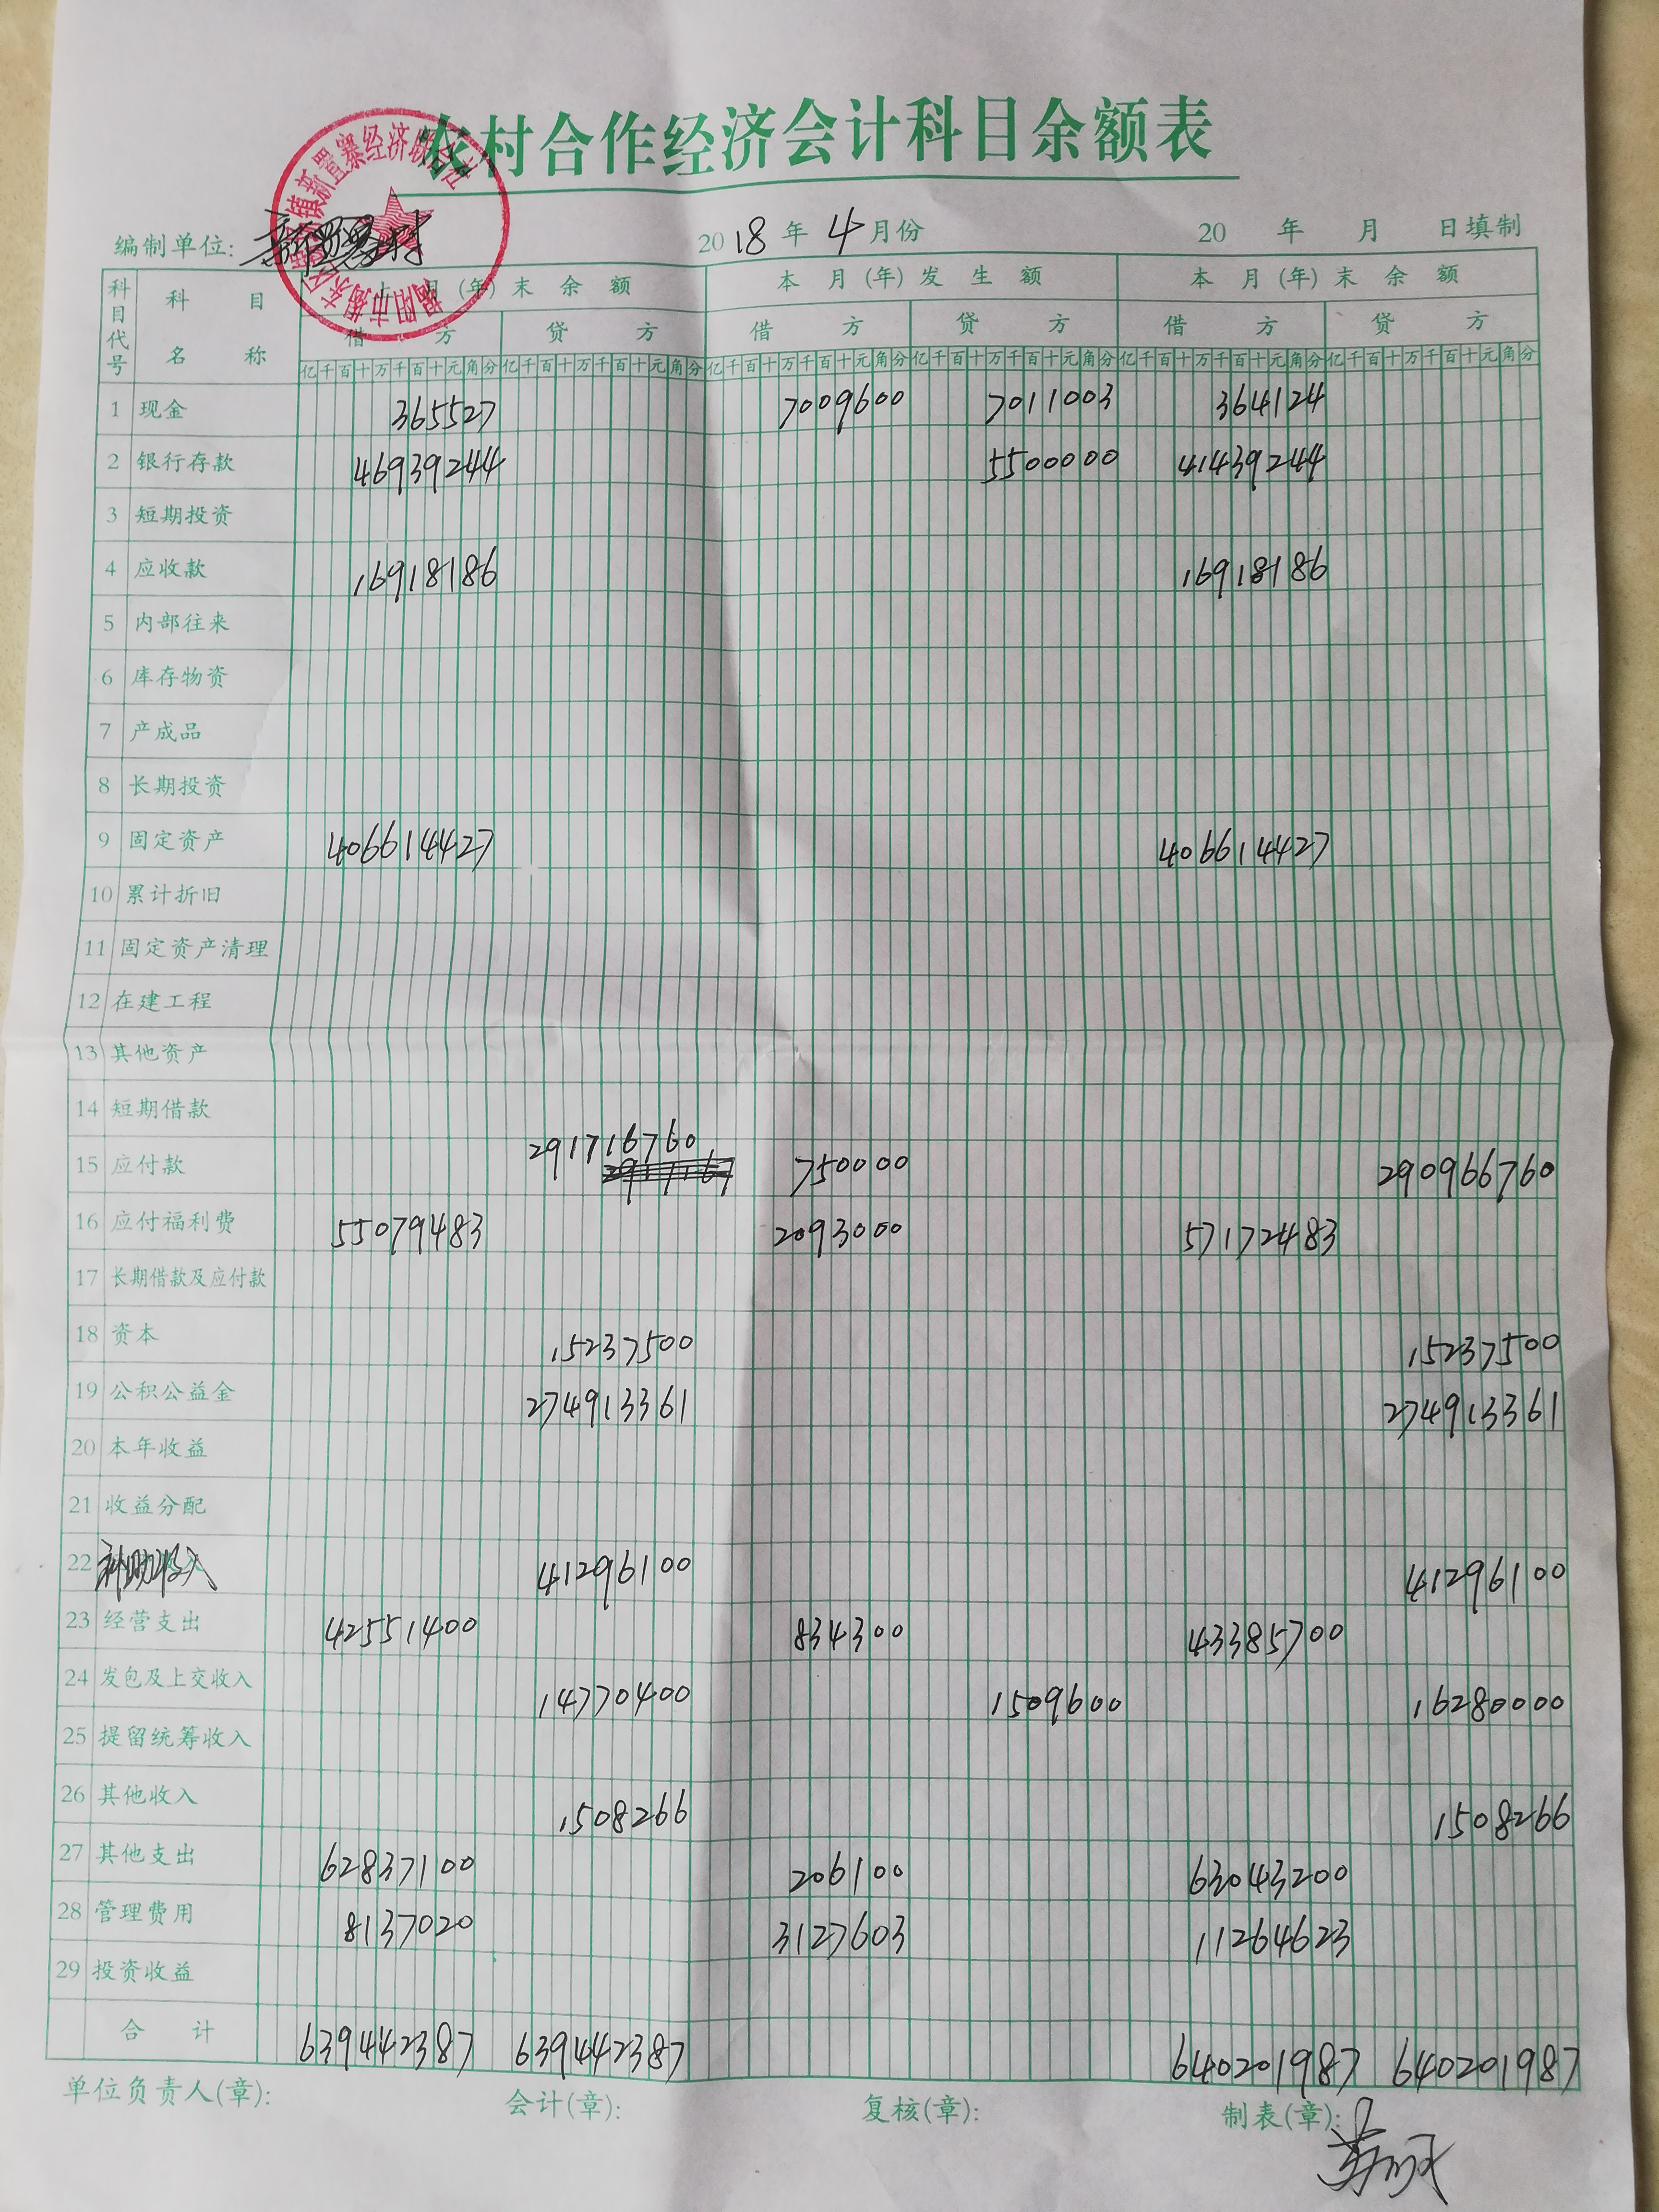 农村合作经济会计科目余额表
揭阳市揭东区 镇新置寨经济联合社
编制单位: 新置寨村 2018年 4月份 20 年 月 日填制
科目代号 科目名称 上月(年)末余额 本月(年)发生额 本月(年)末余额
借方 贷方 借方 贷方 借方 贷方
亿千百十万千百十元角分 亿千百十万千百十元角分 亿千百十万千百十元角分 亿千百十万千百十元角分 亿千百十万千百十元角分 亿千百十万千百十元角分
1 现金 365527 7009600 7011003 364124
2 银行存款 46939244 5500000 41439244
3 短期投资
4 应收款 16918186 16918186
5 内部往来
6 库存物资
7 产成品
8 长期投资
9 固定资产 406614427 406614427
10 累计折旧
11 固定资产清理
12 在建工程
13 其他资产
14 短期借款
15 应付款 291716760 750000 290966760
16 应付福利费 55079483 2093000 57172483
17 长期借款及应付款
18 资本 15237500 15237500
19 公积公益金 274913361 274913361
20 本年收益
21 收益分配
22 补助收入 41296100 41296100
23 经营支出 42551400 834300 43385700
24 发包及上交收入 14770400 1509600 16280000
25 提留统筹收入
26 其他收入 1508266 1508266
27 其他支出 62837100 206100 63043200
28 管理费用 8137020 3127603 11264623
29 投资收益
合计 639442387 639442387 640201987 640201987
单位负责人(章): 会计(章): 复核(章): 制表(章):